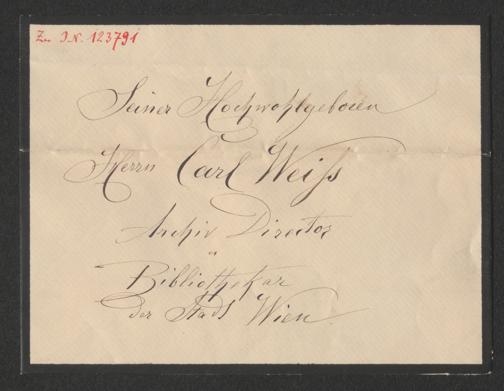 Zu I.N. 123791
Seiner Hochwohlgeboren
Herrn Carl Weiſs
Archiv Director
u
Bibliothekar
der Stadt Wien